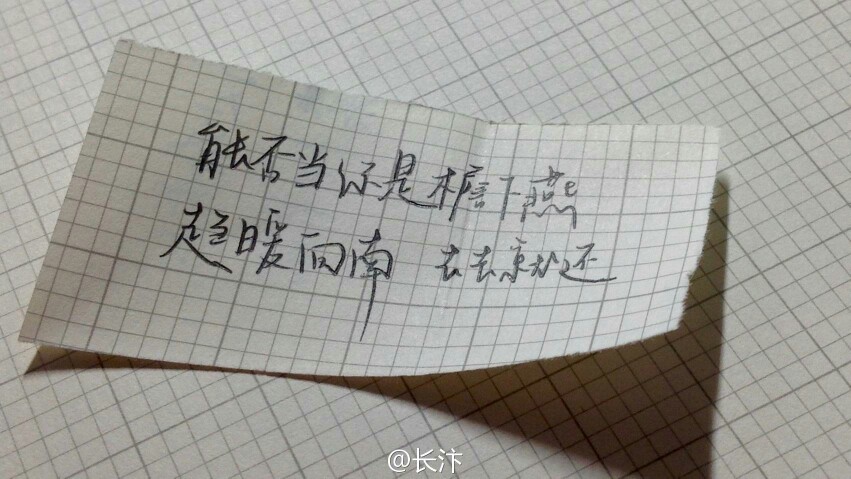 能否当你是檐下燕
趋暖向南 去去就还
@长汴